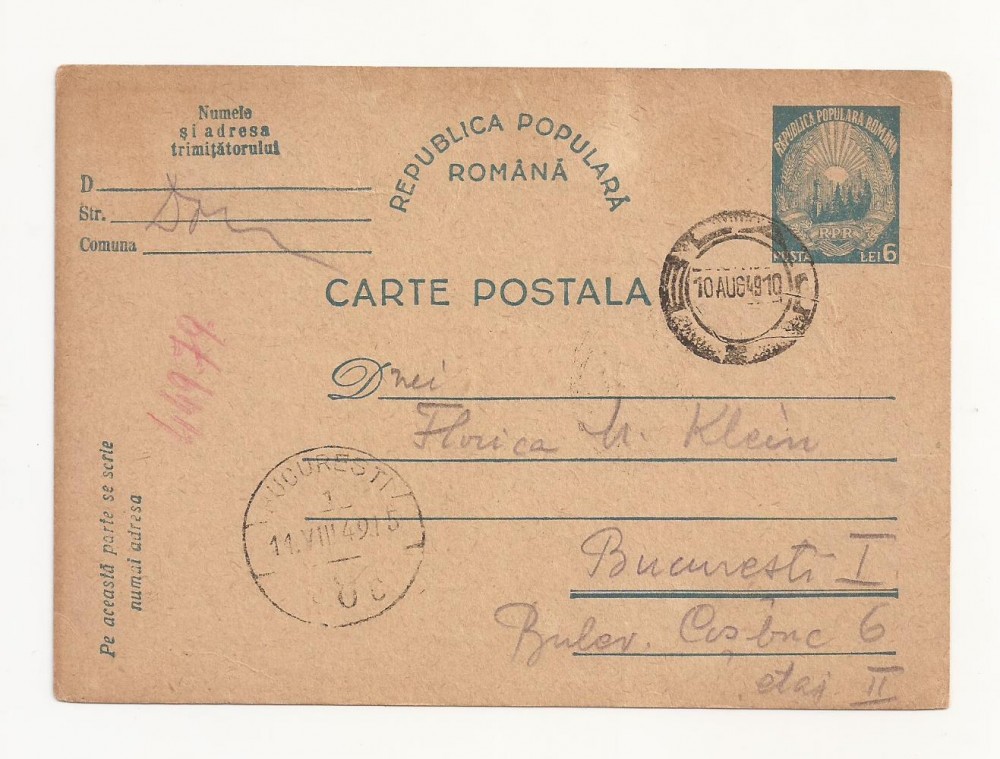 Numele
și adresa
trimițătorului
D
Str.
Comuna
REPUBLICA POPULARĂ
ROMÂNĂ
REPUBLICA POPULARA ROMANA
RPR
POSTA LEI 6
10 AUG 49 10
CARTE POSTALA
449.79
Dnei
Florica M. Klein
BUCURESTI
1
11.VIII 49 15
8 c
București I
Bulev. Coșbuc 6
etaj II
Pe această parte se scrie
numai adresa